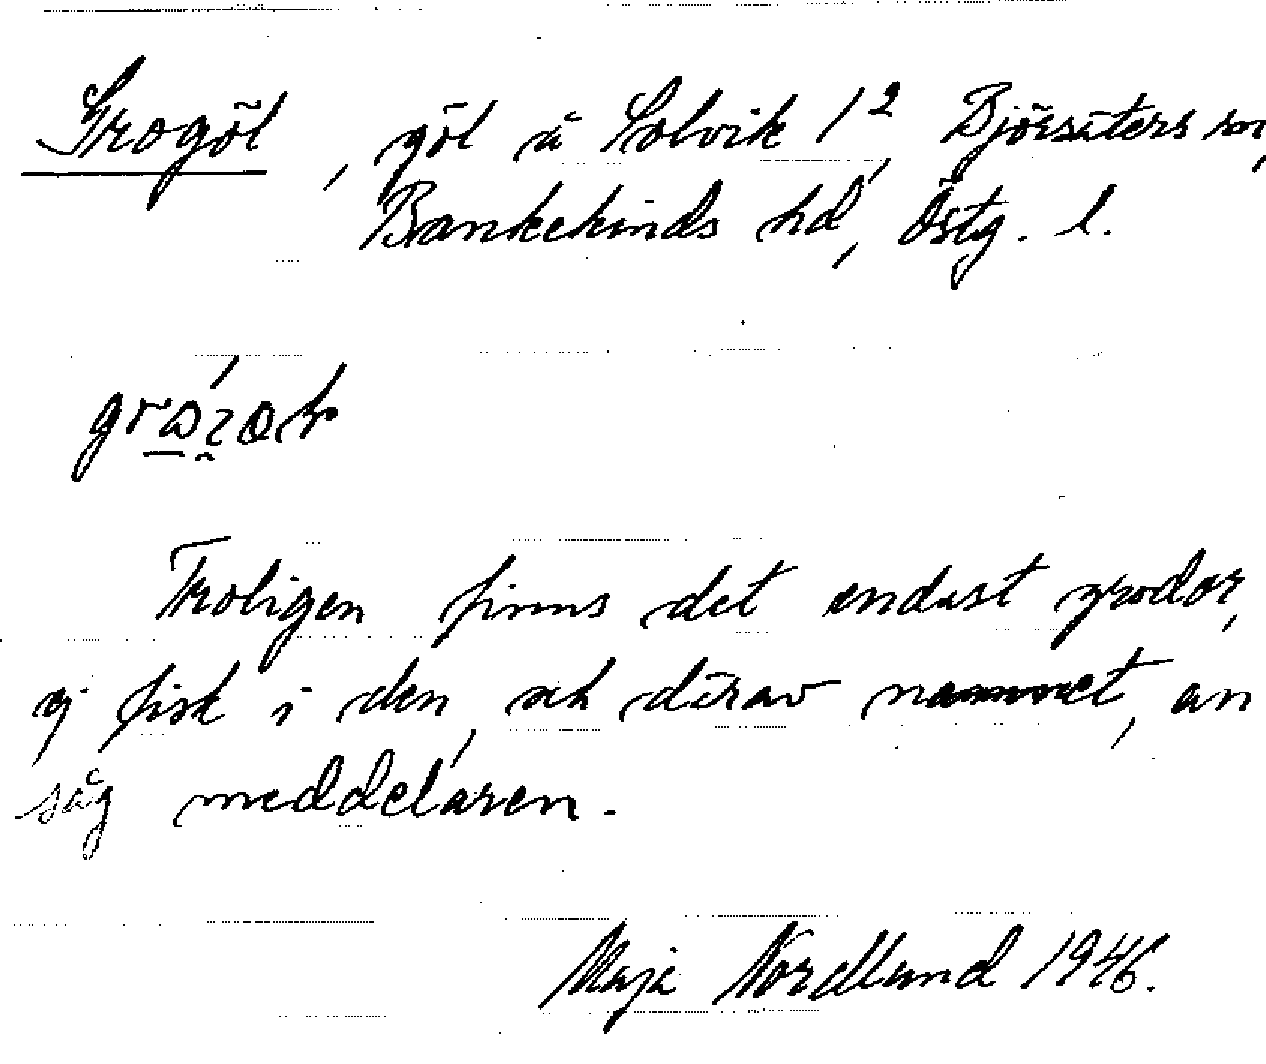 Grogöl, göl å Solvik 1², Björsäters sn,
Bankekinds hd, Östg. l.
Troligen finns det endast grodor,
ej fisk i den, och därav namnet, an
såg meddelaren.
Maja Nordlund 1946.